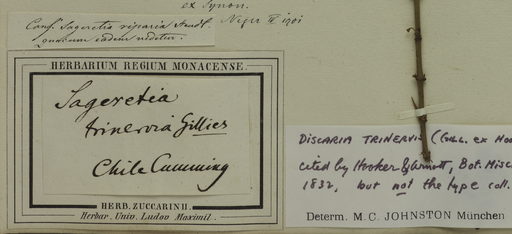 ex Synon.
Conf. Sageretia riparia Steud.
quacum eadem videtur.
HERBARIUM REGIUM MONACENSE.
Sageretia
trinervia Gillies
Chile Cumming
HERB. ZUCCARINII.
Herbar. Univ. Ludov. Maximil.
DISCARIA TRINERVIS (GILL. ex Hoo
cited by Hooker & Arnott, Bot. Misc
1832, but not the type coll.
Determ. M. C. JOHNSTON München